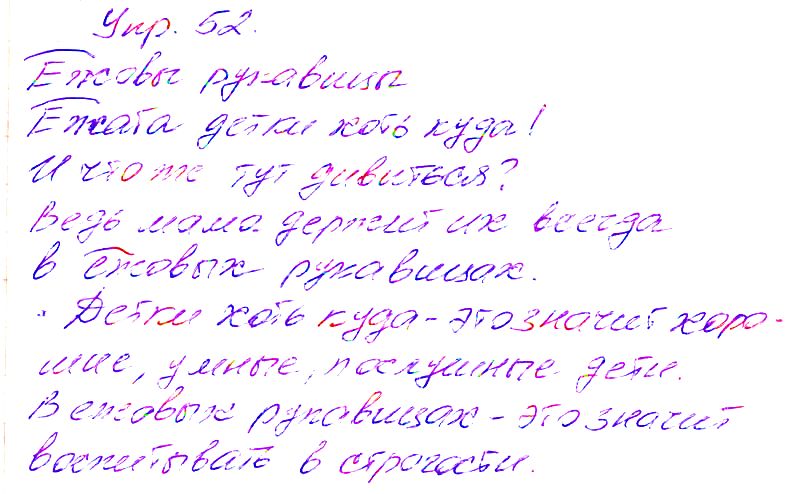 Упр. 52.
Ежовы рукавицы
Ежата детки хоть куда!
И что ж тут дивиться?
Ведь мама держит их всегда
в ежовых рукавицах.
Детки хоть куда - это значит хоро-
шие, умные, послушные дети.
В ежовых рукавицах - это значит
воспитывать в строгости.